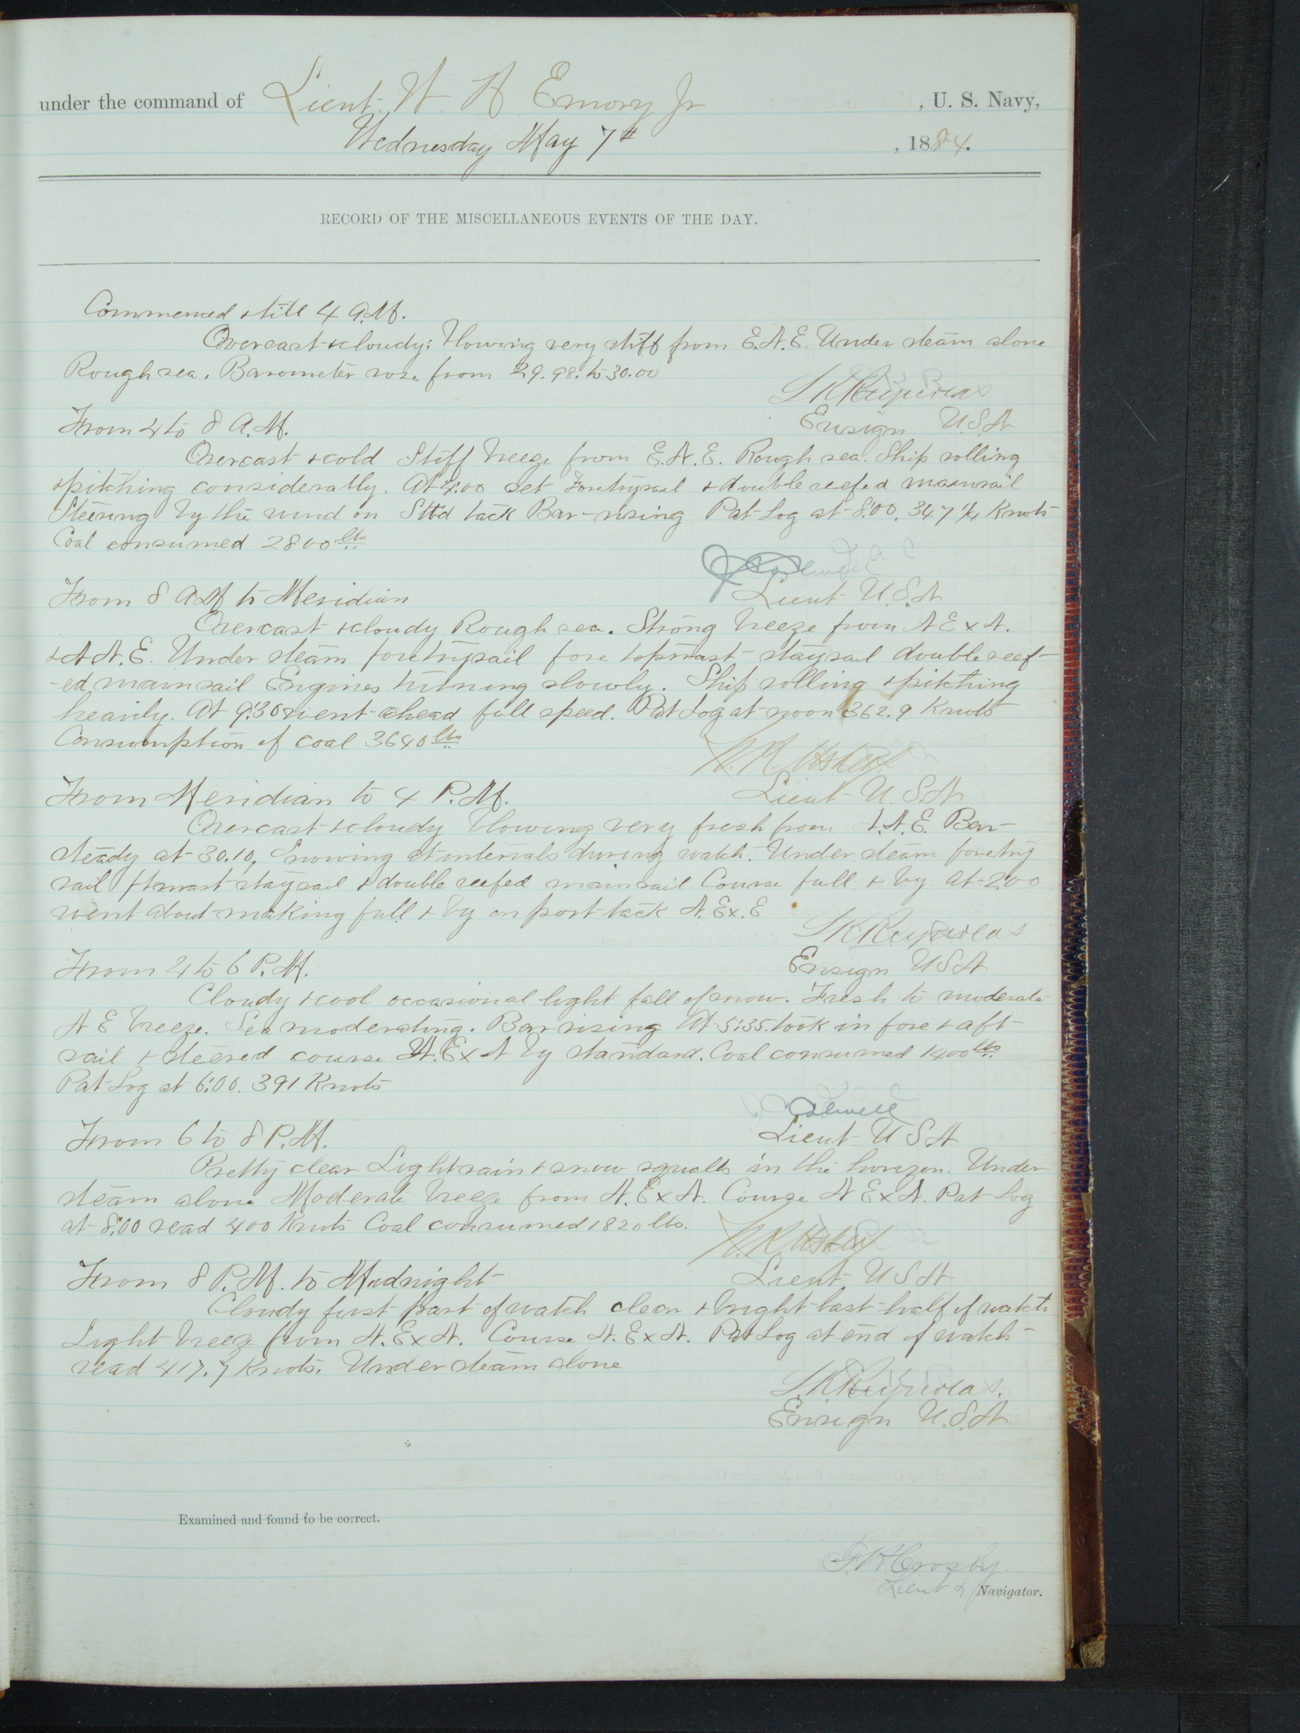 under the command of Lieut. W. H. Emory Jr , U. S. Navy,
Wednesday May 7th , 1884.
RECORD OF THE MISCELLANEOUS EVENTS OF THE DAY.
Commenced & till 4 A.M.
Overcast & cloudy: blowing very stiff from E.N.E. Under steam alone
Rough sea. Barometer rose from 29.98. to 30.00
Ensign U.S.N
From 4 to 8 A.M.
Overcast & cold Stiff breeze from E.N.E. Rough sea. Ship rolling
& pitching considerably. At 4:00 set foretrysail & double reefed mainsail
Steering by the wind on Stbd tack Bar-rising Pat Log at 8:00. 347 1/4 Knots
Coal consumed 2800 lbs.
Lieut U.S.N
From 8 A.M to Meridian
Overcast & cloudy Rough sea. Strong breeze from N E x N.
& N N. E. Under steam foretrysail fore topmast staysail double reef-
-ed mainsail Engines turning slowly. Ship rolling & pitching
heavily. At 9:30 went ahead full speed. Pat Log at noon 362.9 Knots
Consumption of coal 3640 lbs
Lieut U.S.N
From Meridian to 4 P.M.
Overcast & cloudy blowing very fresh from N.E. Bar-
steady at 30.10, Snowing at intervals during watch. Under steam foretry
sail ftmast staysail & double reefed mainsail Course full & by At 2:00
went about making full & by on port tack N. Ex. E
Ensign U S N
From 4 to 6 P.M.
Cloudy & cool occasional light fall of snow. Fresh to moderate
N E breeze. Sea moderating. Bar rising At 5:35. took in fore & aft
sail & steered course N. E x N by standard. Coal consumed 1400 lbs.
Pat Log at 6:00. 391 Knots
Lieut U S N
From 6 to 8 P.M.
Pretty clear Light rain & snow squalls in the horizon. Under
steam alone Moderate breeze from N. E x N. Course N E x N. Pat Log
at 8:00 read 400 Knots Coal consumed 1820 lbs.
Lieut. U S N
From 8 P.M. to Midnight
Cloudy first part of watch clear & bright last half of watch
Light breeze from N. E x N. Course N. E x N. Pat Log at end of watch
read 417.7 Knots. Under steam alone
Ensign U.S.N
Examined and found to be correct.
Crosby
Lieut & Navigator.